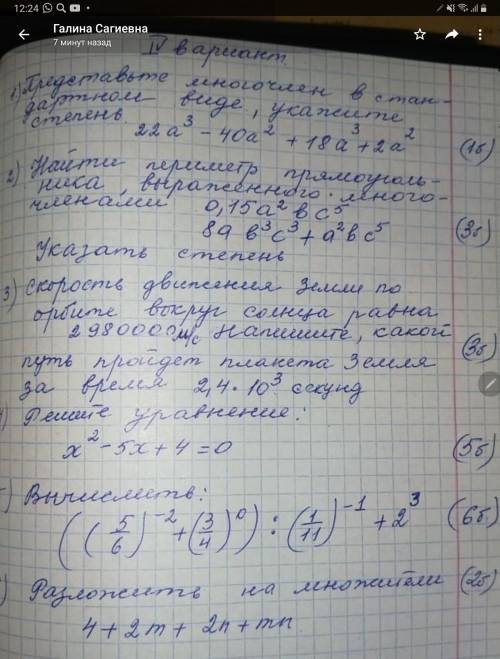 12:24
Галина Сагиевна
7 минут назад
IV вариант
1) Представьте многочлен в стан-
дартном виде, укажите
степень.
22a³ - 40a² + 18a³ + 2a² (1б)
2) Найти периметр прямоуголь-
ника, выраженного много-
членами 0,15a²bc⁵
8ab³c³ + a²bc⁵ (3б)
Указать степень
3) Скорость движения Земли по
орбите вокруг солнца равна
2980000 м/с Напишите, какой
путь пройдет планета Земля (3б)
за время 2,4·10³ секунд
) Решите уравнение:
x² - 5x + 4 = 0 (5б)
) Вычислить:
((5/6)⁻² + (3/4)⁰) : (1/11)⁻¹ + 2³ (6б.)
) Разложить на множители (2б)
4 + 2m + 2n + mn